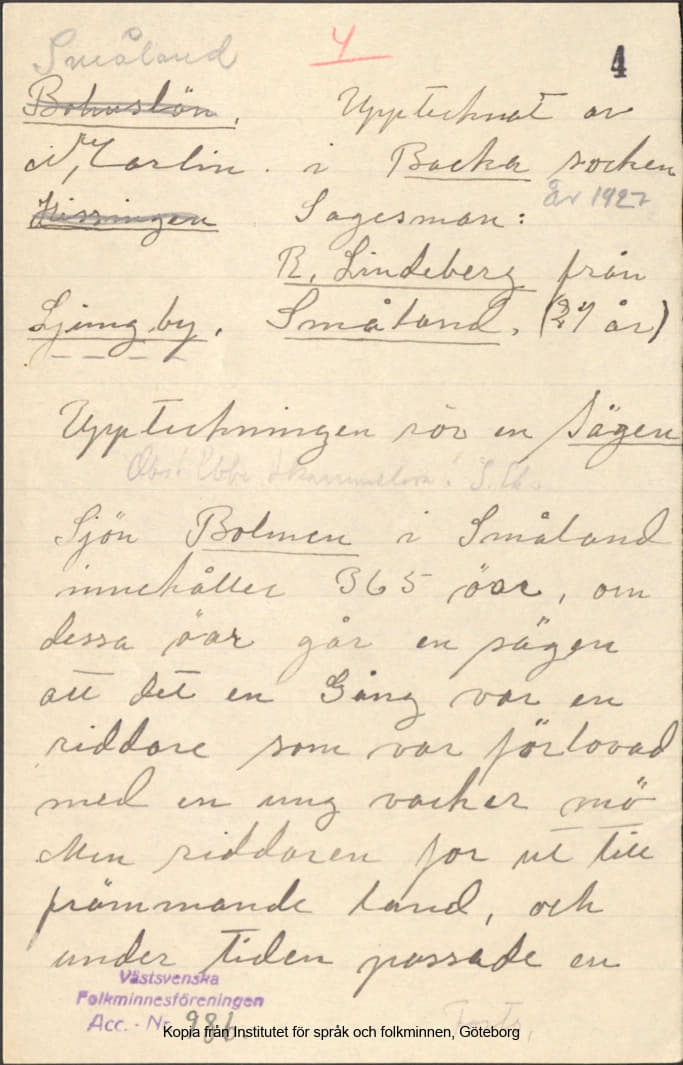 Småland
4
4
Bohuslän, Upptecknat av
N, Carlin. i Backa socken
år 1927
Hissingen Sagesman:
R. Lindeberg från
Ljungby, Småland, (24 år)
Uppteckningen rör en Sägen
Obs! Ebbe
Sjön Bolmen i Småland
innehåller 365 öar, om
dessa öar går en sägen
att det en Gång var en
riddare som var förlovad
med en ung vacker mö
Men riddaren for ut till
främmande land, och
under tiden passade en
Västsvenska
Folkminnesföreningen
Acc. - Nr. 986.
Forts.
Kopia från Institutet för språk och folkminnen, Göteborg